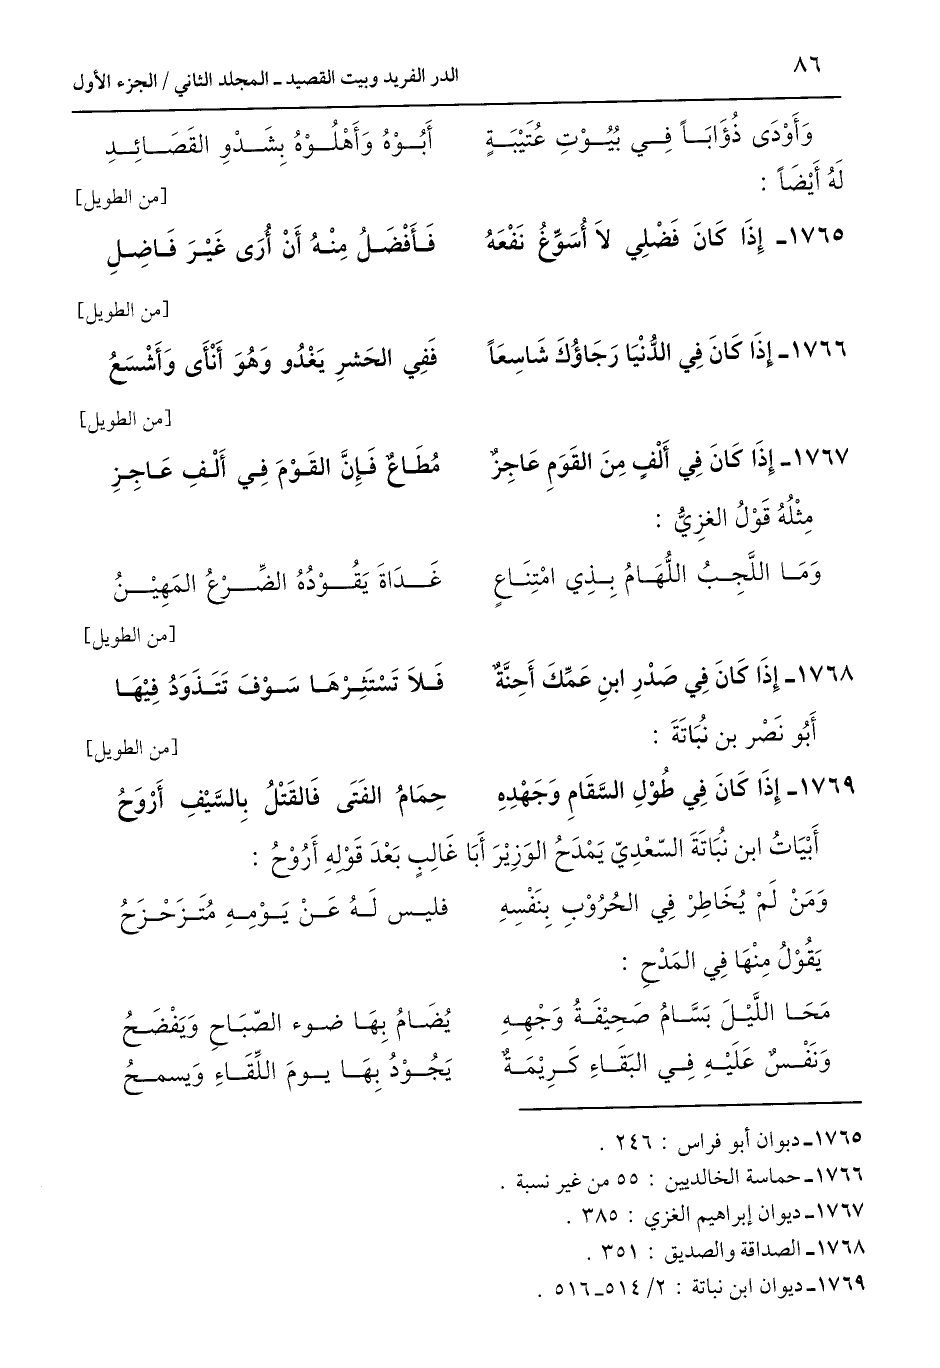 ٨٦
الدر الفريد وبيت القصيد ـ المجلد الثاني / الجزء الأول
وَأَوْدَى ذُؤَابَاً فِي بُيُوْتِ عُتَيْبَةٍ أَبُوْهُ وَأَهْلُوْهُ بِشَدْوِ القَصَائِدِ
لَهُ أَيْضَاً :
[من الطويل]
١٧٦٥ـ إِذَا كَانَ فَضْلِي لاَ أُسَوَّغُ نَفْعَهُ فَأَفْضَلُ مِنْهُ أَنْ أُرَى غَيْرَ فَاضِلِ
[من الطويل]
١٧٦٦ـ إِذَا كَانَ فِي الدُّنْيَا رَجَاؤُكَ شَاسِعَاً فَفِي الحَشرِ يَغْدُو وَهُوَ أَنْأَى وَأَشْسَعُ
[من الطويل]
١٧٦٧ـ إِذَا كَانَ فِي أَلْفٍ مِنَ القَومِ عَاجِزٌ مُطَاعٌ فَإِنَّ القَوْمَ فِي أَلْفِ عَاجِزِ
مِثْلُهُ قَوْلُ الغزِيُّ :
وَمَا اللَّجِبُ اللُّهَامُ بِذِي امْتِنَاعٍ غَدَاةَ يَقُوْدُهُ الضِّرْعُ المَهِيْنُ
[من الطويل]
١٧٦٨ـ إِذَا كَانَ فِي صَدْرِ ابنِ عَمِّكَ أَحِنَّةٌ فَلاَ تَسْتَثِرْهَا سَوْفَ تَتَذَودُ فِيْهَا
أَبُو نَصْر بن نُبَاتَةَ :
[من الطويل]
١٧٦٩ـ إِذَا كَانَ فِي طُوْلِ السَّقَامِ وَجَهْدِهِ حِمَامُ الفَتَى فَالقَتْلُ بِالسَّيْفِ أَرْوَحُ
أَبْيَاتُ ابن نُبَاتَةَ السّعْدِيّ يَمْدَحُ الوَزِيْرَ أَبَا غَالِبٍ بَعْدَ قَوْلِهِ أَرْوَحُ :
وَمَنْ لَمْ يُخَاطِرْ فِي الحُرُوْبِ بِنَفْسِهِ فليس لَهُ عَنْ يَوْمِهِ مُتَزَحْزَحُ
يَقُوْلُ مِنْهَا فِي المَدْحِ :
مَحَا اللَّيْلَ بَسَّامُ صَحِيْفَةُ وَجْهِهِ يُضَامُ بِهَا ضوء الصّبَاحِ وَيَفْضَحُ
وَنَفْسٌ عَلَيْهِ فِي البَقَاءِ كَرِيْمَةٌ يَجُوْدُ بِهَا يومَ اللِّقَاءِ وَيسمحُ
١٧٦٥ـ ديوان أبو فراس : ٢٤٦ .
١٧٦٦ـ حماسة الخالديين : ٥٥ من غير نسبة .
١٧٦٧ـ ديوان إبراهيم الغزي : ٣٨٥ .
١٧٦٨ـ الصداقة والصديق : ٣٥١ .
١٧٦٩ـ ديوان ابن نباتة : ٢/ ٥١٤ـ٥١٦ .